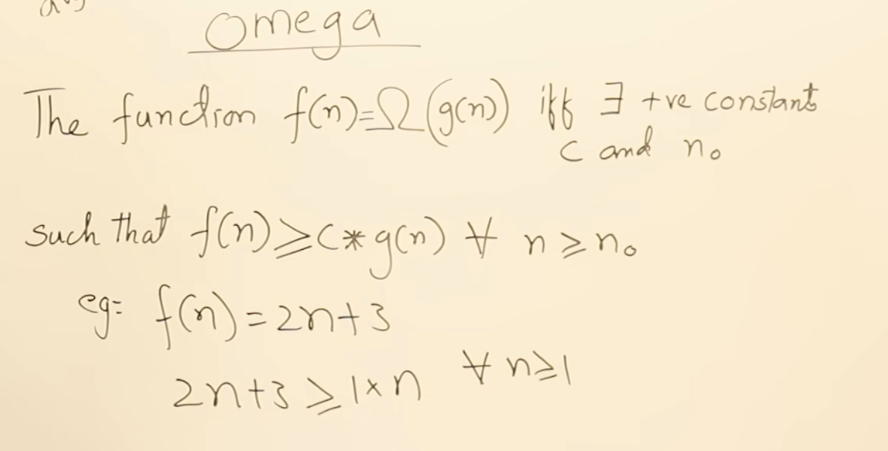 Omega
The function f(n)=Ω(g(n)) iff ∃ +ve constant
c and n₀
such that f(n)≥c*g(n) ∀ n≥n₀
eg= f(n)=2n+3
2n+3≥1×n ∀ n≥1